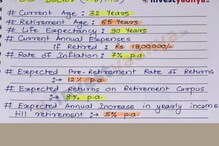 # Current Age : 32 Years
# Retirement Age : 65 Years
# Life Expectancy : 90 Years
# Current Annual Expenses
if Retired : Rs 18,00,000/-
# Rate of Inflation : 7% p.a.
# Expected Pre-Retirement Rate of Returns
- 12% p.a.
# Expected Returns on Retirement Corpus
- 8% p.a.
# Expected Annual Increase in yearly income
till retirement - 5% p.a.